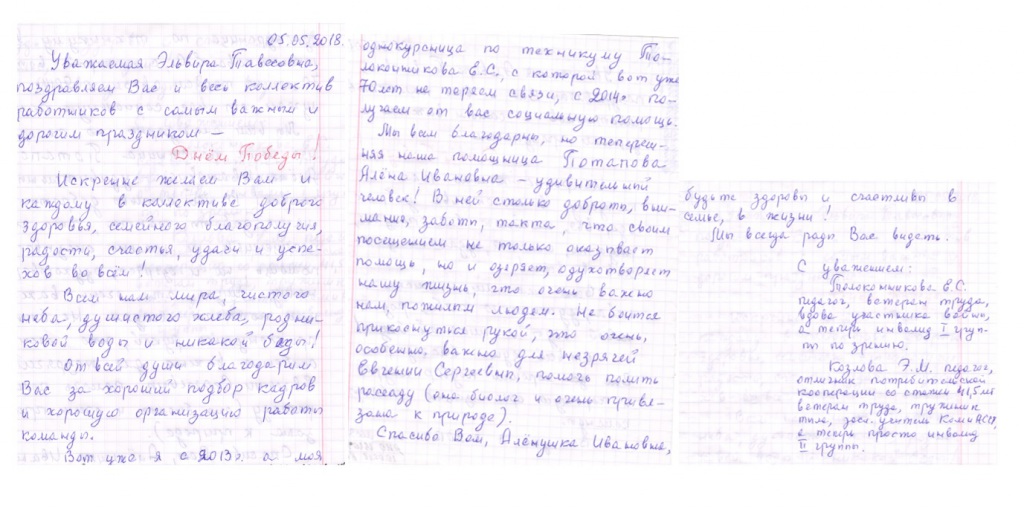 05.05.2018.
Уважаемая Эльвира Павесовна,
поздравляем Вас и весь коллектив
работников с самым важным и
дорогим праздником —
Днём Победы!
Искренне желаем Вам и
каждому в коллективе доброго
здоровья, семейного благополучия,
радости, счастья, удачи и успе-
хов во всём!
Всем нам мира, чистого
неба, душистого хлеба, родни-
ковой воды и никакой беды!
От всей души благодарим
Вас за хороший подбор кадров
и хорошую организацию работы
команды.
Вот уже я с 2013г. а моя
однокурсница по техникуму То-
локонникова Е.С., с которой вот уже
70 лет не теряем связи, с 2014г по-
лучаем от вас социальную помощь.
Мы всем благодарны, но тепереш-
няя наша помощница Потапова
Алёна Ивановна – удивительный
человек! В ней столько доброты, вни-
мания, заботы, такта, что своим
посещением не только оказывает
помощь, но и озаряет, одухотворяет
нашу жизнь, что очень важно
нам, пожилым людям. Не боится
прикоснуться рукой, это очень,
особенно, важно для незрячей
Евгении Сергеевны, помочь полить
рассаду (она биолог и очень привя-
зана к природе).
Спасибо Вам, Алёнушка Ивановна,
будьте здоровы и счастливы в
семье, в жизни!
Мы всегда рады Вас видеть.
С уважением:
Толоконникова Е.С.
педагог, ветеран труда,
вдова участника войны,
а теперь инвалид I груп-
пы по зрению.
Козлова Э.М. педагог,
отличник потребительской
кооперации со стажем 41,5 лет
ветеран труда, труженик
тыла, засл. учитель Коми АССР,
а теперь просто инвалид
II группы.